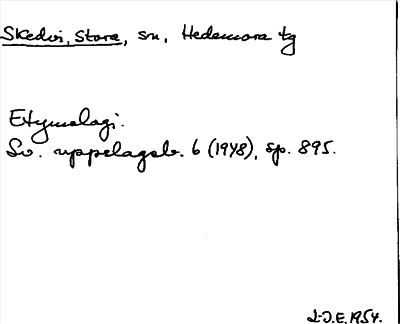 Skedvi, Stora, sn, Hedemora tg
Etymologi.
Sv. uppslagsb. 6 (1948), sp. 895.
L-J.E. 1954.